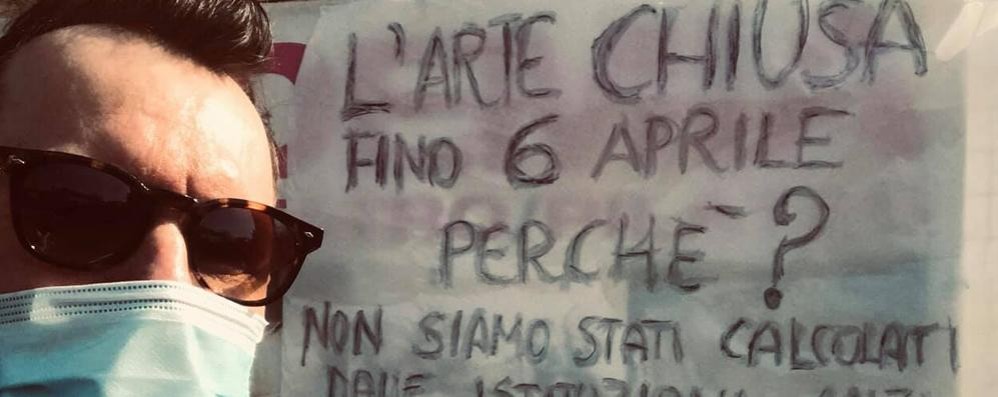 L'ARTE CHIUSA
FINO 6 APRILE
PERCHÈ ?
NON SIAMO STATI CALCOLATI
DALLE ISTITUZIONI